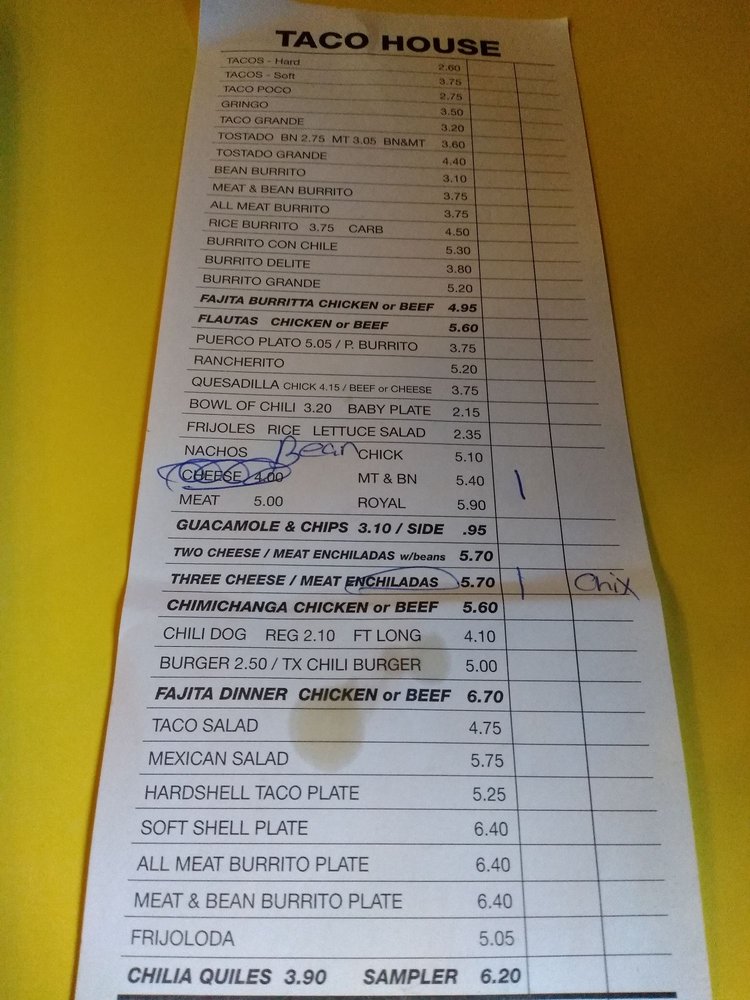 TACO HOUSE
TACOS - Hard 2.60
TACOS - Soft 3.75
TACO POCO 2.75
GRINGO 3.50
TACO GRANDE 3.20
TOSTADO BN 2.75 MT 3.05 BN&MT 3.60
TOSTADO GRANDE 4.40
BEAN BURRITO 3.10
MEAT & BEAN BURRITO 3.75
ALL MEAT BURRITO 3.75
RICE BURRITO 3.75 CARB 4.50
BURRITO CON CHILE 5.30
BURRITO DELITE 3.80
BURRITO GRANDE 5.20
FAJITA BURRITTA CHICKEN or BEEF 4.95
FLAUTAS CHICKEN or BEEF 5.60
PUERCO PLATO 5.05 / P. BURRITO 3.75
RANCHERITO 5.20
QUESADILLA CHICK 4.15 / BEEF or CHEESE 3.75
BOWL OF CHILI 3.20 BABY PLATE 2.15
FRIJOLES RICE LETTUCE SALAD 2.35
NACHOS Bean CHICK 5.10
CHEESE 4.00 MT & BN 5.40 1
MEAT 5.00 ROYAL 5.90
GUACAMOLE & CHIPS 3.10 / SIDE .95
TWO CHEESE / MEAT ENCHILADAS w/beans 5.70
THREE CHEESE / MEAT ENCHILADAS 5.70 1 Chix
CHIMICHANGA CHICKEN or BEEF 5.60
CHILI DOG REG 2.10 FT LONG 4.10
BURGER 2.50 / TX CHILI BURGER 5.00
FAJITA DINNER CHICKEN or BEEF 6.70
TACO SALAD 4.75
MEXICAN SALAD 5.75
HARDSHELL TACO PLATE 5.25
SOFT SHELL PLATE 6.40
ALL MEAT BURRITO PLATE 6.40
MEAT & BEAN BURRITO PLATE 6.40
FRIJOLODA 5.05
CHILIA QUILES 3.90 SAMPLER 6.20